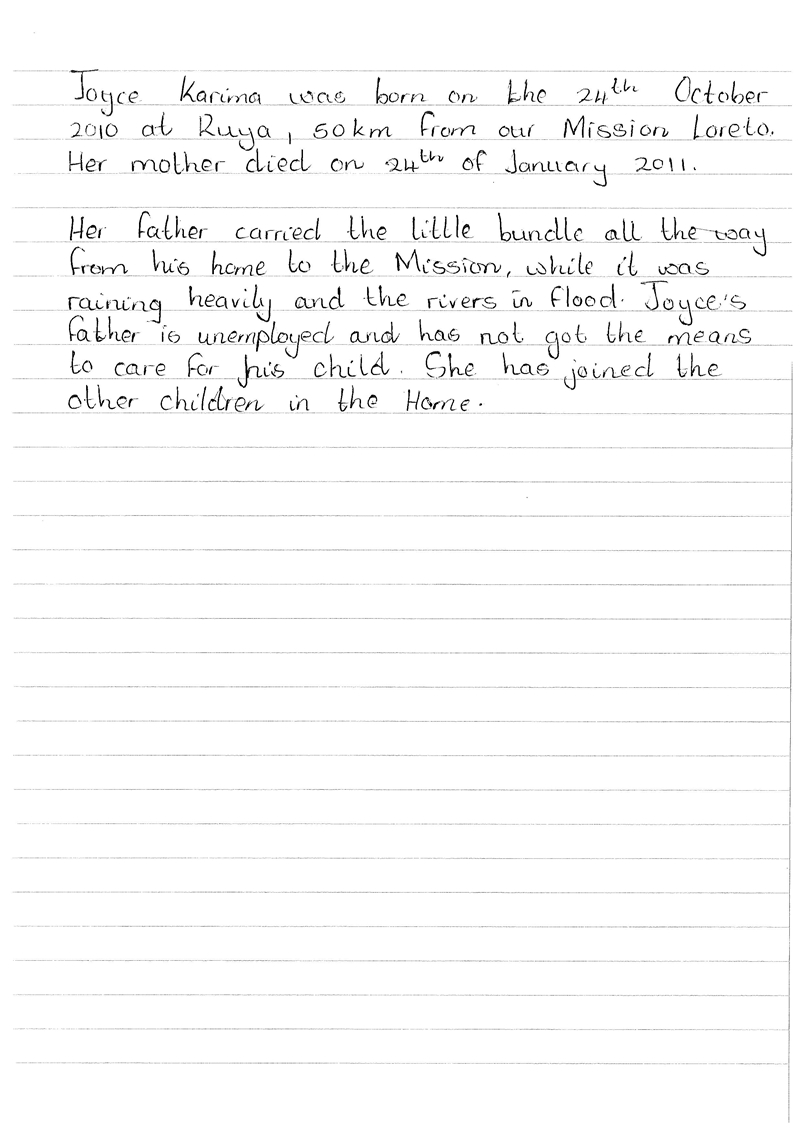 Joyce Karima was born on the 24th October
2010 at Ruya, 50km from our Mission Loreto.
Her mother died on 24th of January 2011.
Her father carried the little bundle all the way
from his home to the Mission, while it was
raining heavily and the rivers in flood. Joyce's
father is unemployed and has not got the means
to care for his child. She has joined the
other children in the Home.